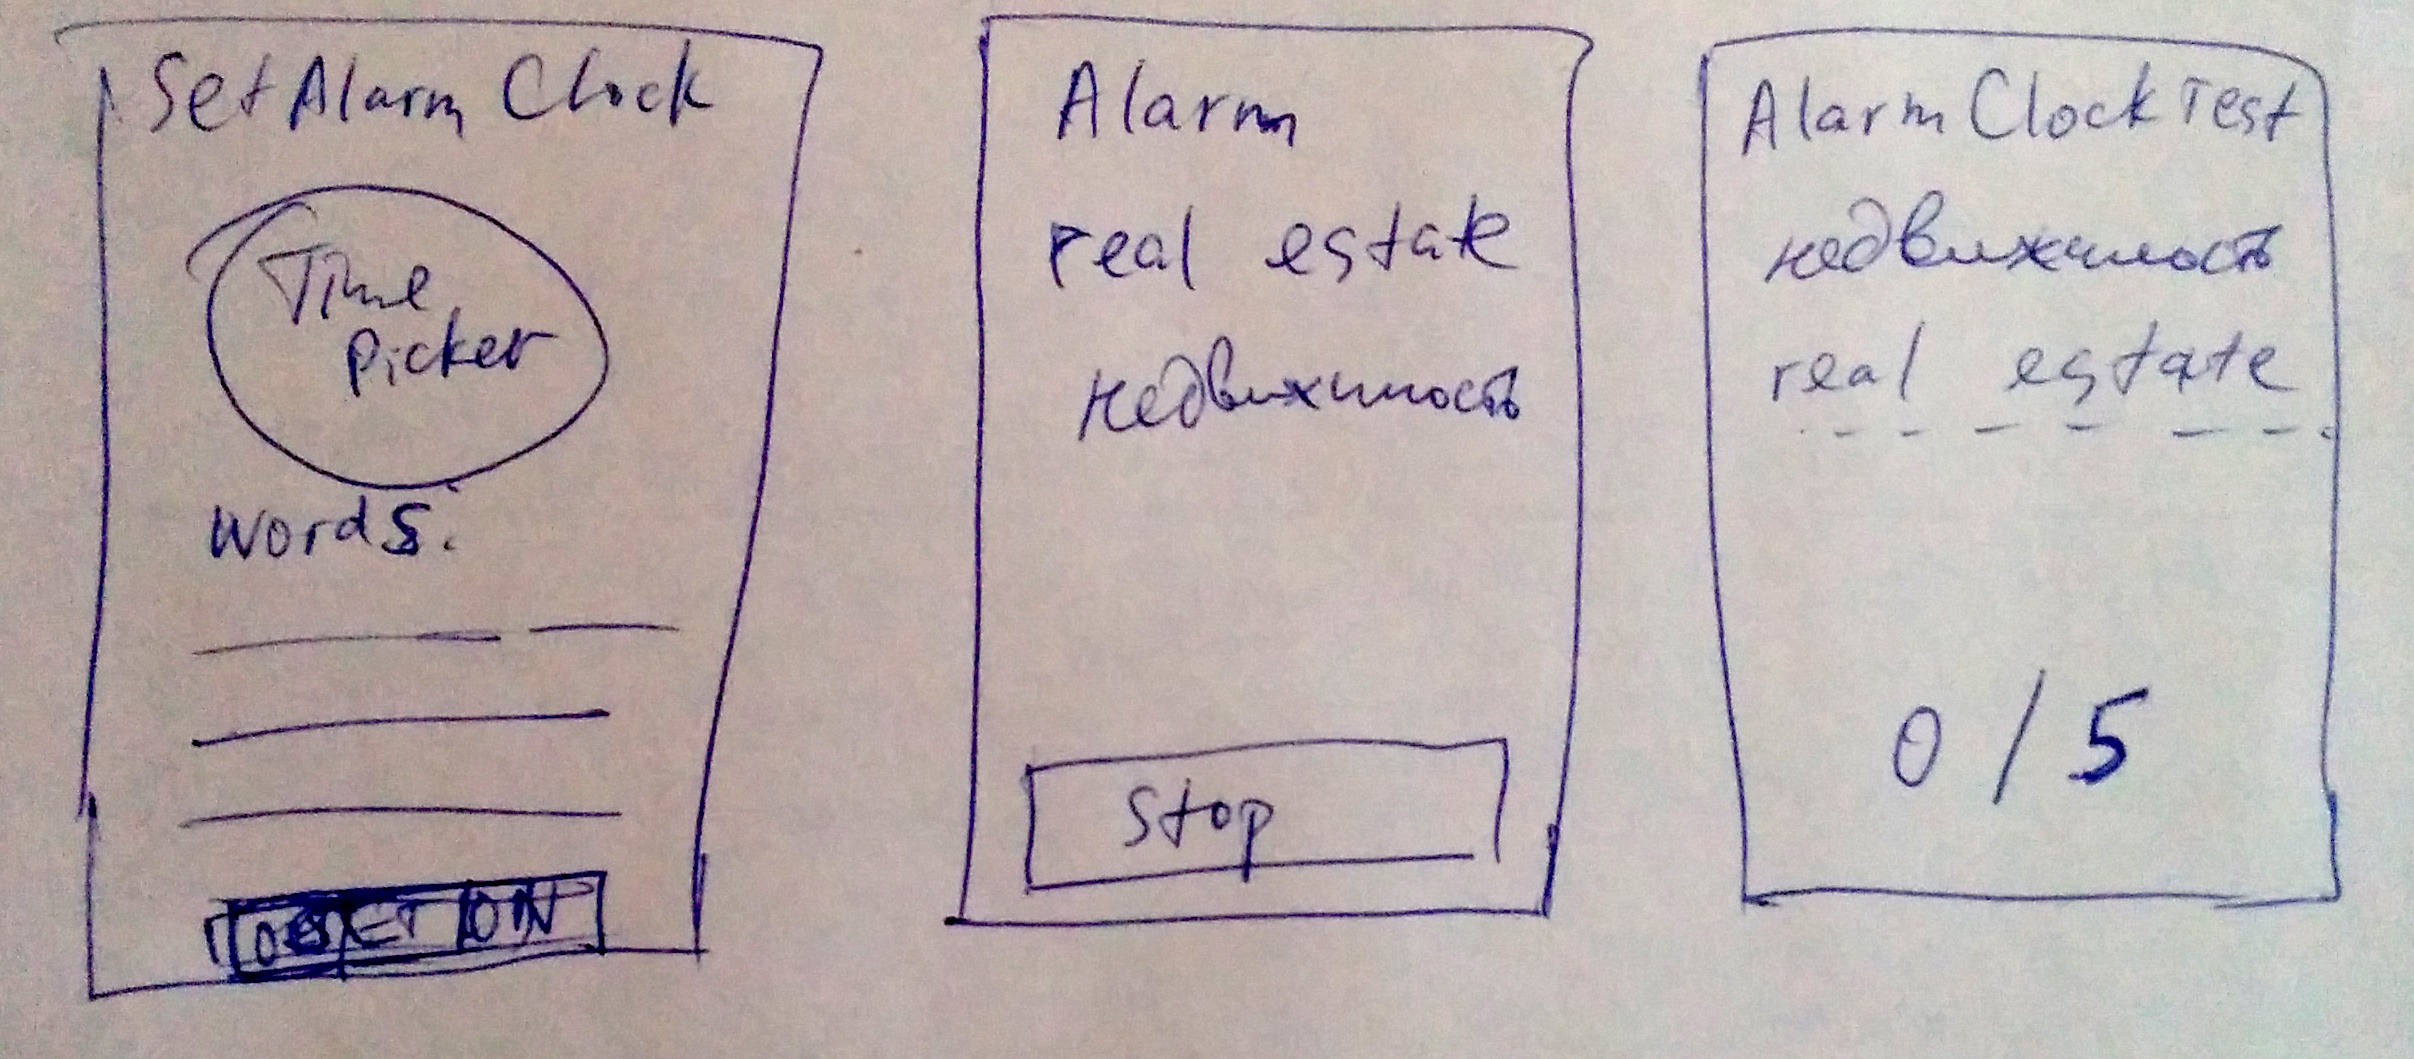 Set Alarm Clock
Time
Picker
Words:
Alarm
real estate
недвижимость
Stop
Alarm Clock Test
недвижимость
real estate
0 / 5